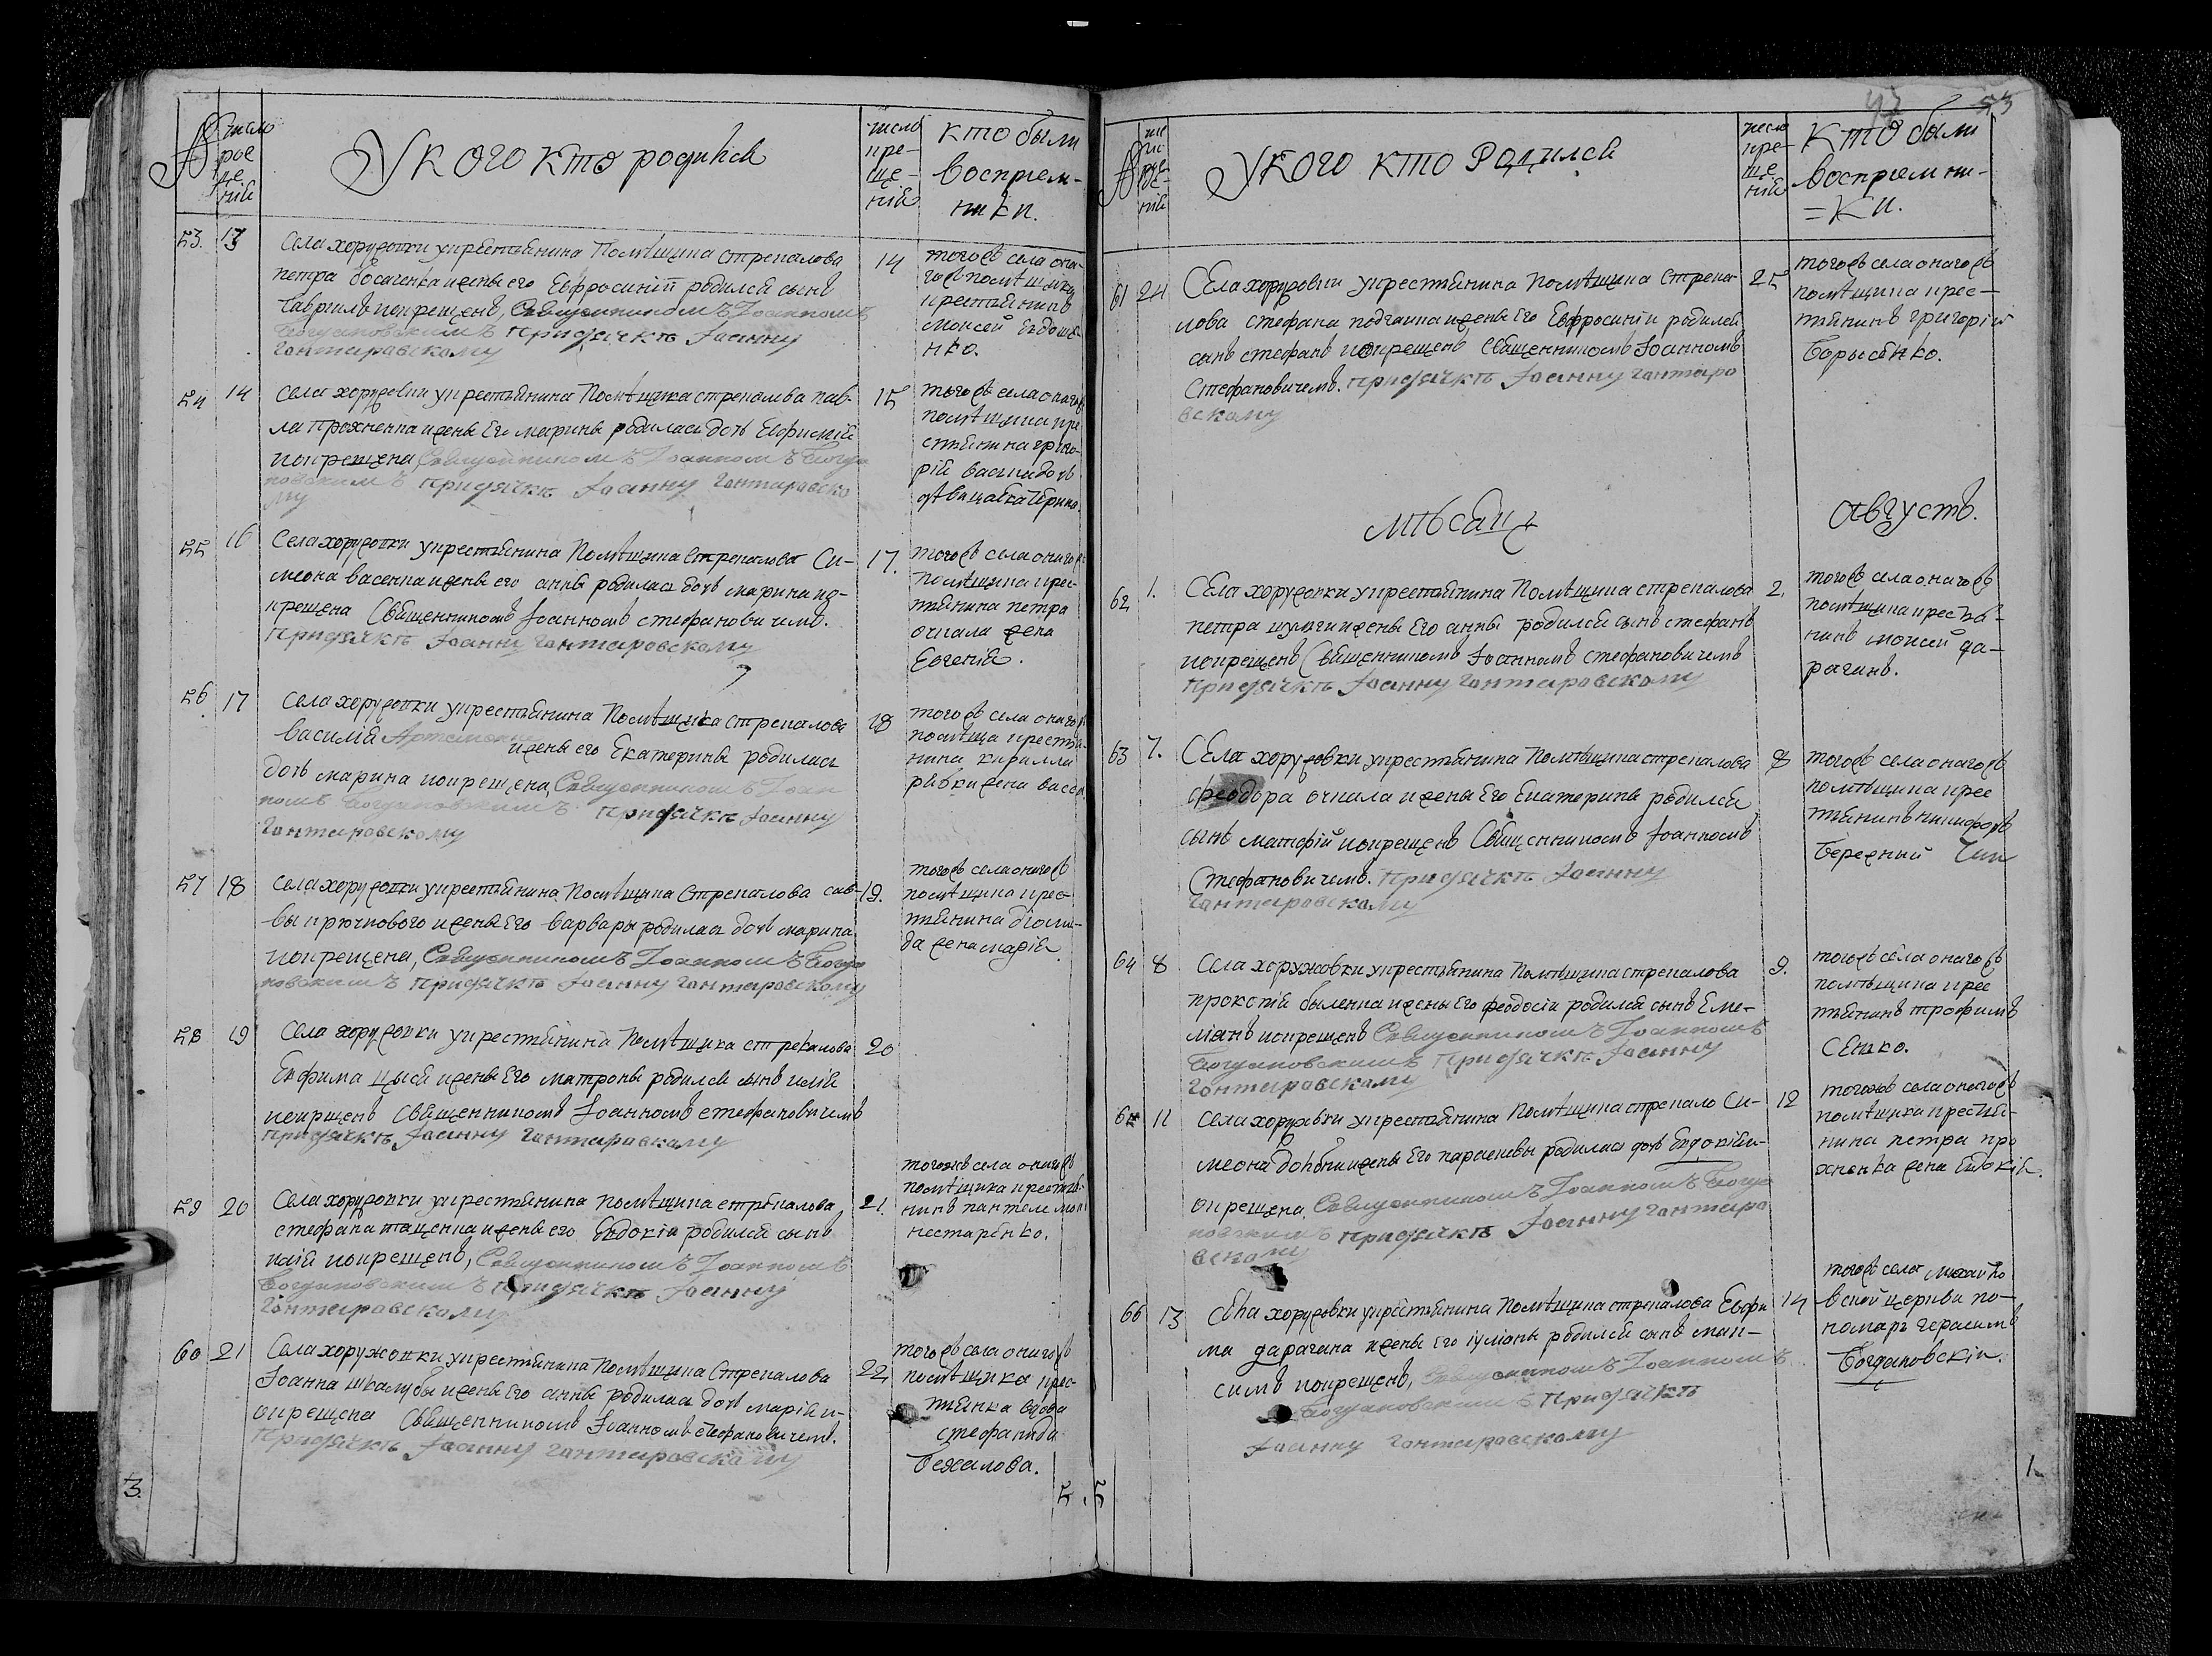 число рождений
У кого кто родился
число крещений
кто были
восприем-
ники.
53. 13
Села хоружовки у крестьянина Помѣщика стрекалова
14
петра босаченка и жены его Евфросиніи родился сынъ
Гавріилъ и окрещенъ, Священникомъ Іоанномъ
Богдановскимъ при дячкѣ Іоанну
Гонтаровскому
тогожъ села она-
гожъ помѣщика
крестьянинъ
моисей
нко.
54 14
села хоружовки у крестьянина Помѣщика стрекалова пав-
15
ла прохненка и жены Его марины родилась дочь Евфимія
и окрещена, Священникомъ Іоанномъ Богда
новскимъ при дячкѣ Іоанну Гонтаровско
му
тогожъ села онагожъ
помѣщика кре
стьянина григо-
рій дочь
55 16
Села хоружовки у крестьянина Помѣщика Стрекалова Си-
17.
меона васенка и жены его анны родилась дочь марина и о-
крещена Священникомъ Іоанномъ стефановичемъ.
При дячкѣ Іоанну Гонтаровскому
тогожъ села онагожъ
помѣщика крес-
тьянина петра
очкала жена
Евгенія.
56. 17
Села хоружовки у крестьянина Помѣщика стрекалова
18
василія и жены его Екатерины родилась
дочь марина и окрещена, Священникомъ Іоан
номъ Богдановскимъ при дячкѣ Іоанну
Гонтаровскому
тогожъ села онагожъ
помѣща крестья-
нина кирилла
жена
57 18
села хоружовки у крестьянина Помѣщика Стрекалова сав-
19.
вы крючкового и жены Его варвары родилась дочь марина
и окрещена, Священникомъ Іоанномъ Богда
новскимъ при дячкѣ Іоанну Гонтаровскому
тогожъ села онагожъ
помѣщика крес-
тьянина діоми-
да жена марія.
58 19
Села хоружовки у крестьянина Помѣщика стрекалова
20
Евфима и жены Его матроны родился сынъ илія
и окрщенъ Священникомъ Іоанномъ стефановичемъ
при дячкѣ Іоанну Гонтаровскому
59 20
Села хоружовки у крестьянина помѣщика стрекалова,
21.
стефана тащенка и жены его Евдокіа родился сынъ
илія и окрещенъ, Священникомъ Іоанномъ
Богдановскимъ при дячкѣ Іоанну
Гонтаровскому
тогожъ села онагожъ
помѣщика крестья-
нинъ пантелимонъ
нестаренко.
60 21
Села хоружовки у крестьянина Помѣщика Стрекалова
22
Іоанна шкалубы и жены Его анны родилась дочь марія и-
окрещена Священникомъ Іоанномъ стефановичемъ.
При дячкѣ Іоанну Гонтаровскому
тогожъ села онагожъ
помѣщика крес-
тьянка вдова
стефанида
Бехалова.
3.
5
43 53
У кого кто Родился
число крещеній
Кто были
восприемни-
=Ки.
61 24
Села хоружовки у крестьянина Помѣщика Стрека-
25
лова стефана и жены Его Евфросиніи родился
сынъ стефанъ и окрещенъ Священникомъ Іоанномъ
Стефановичемъ. при дячкѣ Іоанну Гонтаро
вскому
тогожъ села онагожъ
помѣщика крес-
тьянинъ григорій
Борысенко.
мѣсацъ
августъ.
62 1.
Села хоружовки у крестьянина Помѣщика стрекалова
2.
петра и жены Его анны родился сынъ стефанъ
и окрещенъ Священникомъ Іоанномъ стефановичемъ
при дячкѣ Іоанну Гонтаровскому
тогожъ села онагожъ
помѣщика крестья-
нинъ моисей да-
раганъ.
63 7.
Села хоружовки у крестьянина Помѣщика стрекалова
8
феодора очкала и жены Его Екатерины родился
сынъ матфій и окрещенъ Священникомъ Іоанномъ
Стефановичемъ. При дячкѣ Іоанну
Гонтаровскому
тогожъ села онагожъ
помѣщика крес
тьянинъ никифоръ
Бережный
64 8
Села хоружовки у крестьянина Помѣщика стрекалова
9.
прокопія быленка и жены Его феодосіа родился сынъ Еме-
ліанъ и окрещенъ Священникомъ Іоанномъ
Богдановскимъ при дячкѣ Іоанну
Гонтаровскому
тогожъ села онагожъ
помѣщика крес
тьянинъ трофимъ
Сенко.
11
Села хоружовки у крестьянина Помѣщика стрекало Си-
12
меона и жены Его параскевы родилась дочь Евдокія и-
окрещена Священникомъ Іоанномъ Богда
новскимъ при дячкѣ Іоанну Гонтаро
вскому
тогожъ села онагожъ
помѣщика крестья-
нина петра про
хненка жена Евдокія.
66 13
Села хоружовки у крестьянина Помѣщика стрекалова Евфи
14
ма дарагана и жены Его іуліаны родился сынъ мак-
симъ и окрещенъ, Священникомъ Іоанномъ
Богдановскимъ при дячкѣ
Іоанну Гонтаровскому
тогожъ села михайло
вской церкви по-
номарь герасимъ
Богдановскій.
1.